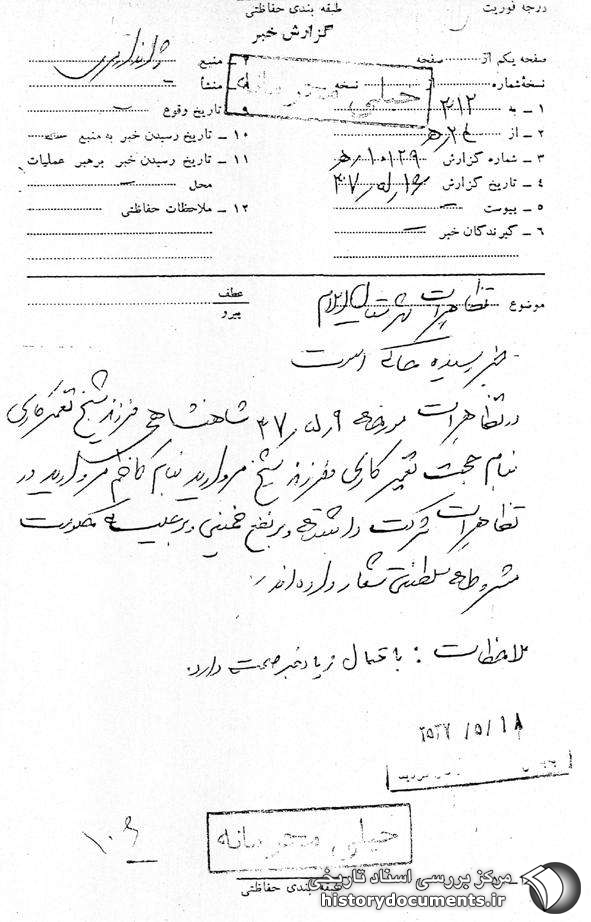 درجه فوریت
طبقه بندی حفاظتی
گزارش خبر
صفحه یکم از صفحه
نسخهٔ شماره از نسخه
۱ ـ به ۳۱۲
۲ ـ از
۳ ـ شماره گزارش ۱۰۱۲۹
۴ ـ تاریخ گزارش ۳۷
۵ ـ پیوست
۶ ـ گیرندگان خبر
۷ ـ منبع
۸ ـ منشأ
۹ ـ تاریخ وقوع
۱۰ ـ تاریخ رسیدن خبر به منبع
۱۱ ـ تاریخ رسیدن خبر برهبر عملیات
محل
۱۲ ـ ملاحظات حفاظتی
خیلی محرمانه
موضوع تظاهرات
عطف
پیرو
خبر رسیده حاکی است
در تظاهرات مورخه ۳۷ شاهنشاهی فرزند شیخ
بنام حجت و فرزند شیخ مروارید بنام کاظم مروارید در
تظاهرات شرکت داشته و بر نفع خمینی و بر علیه حکومت
مشروطه سلطنتی شعار داده‌اند
ملاحظات : باحتمال زیاد خبر صحت دارد.
۲۵۳۷/۵/۱۸
خیلی محرمانه
۱۰۶
طبقه بندی حفاظتی
مرکز بررسی اسناد تاریخی
historydocuments.ir